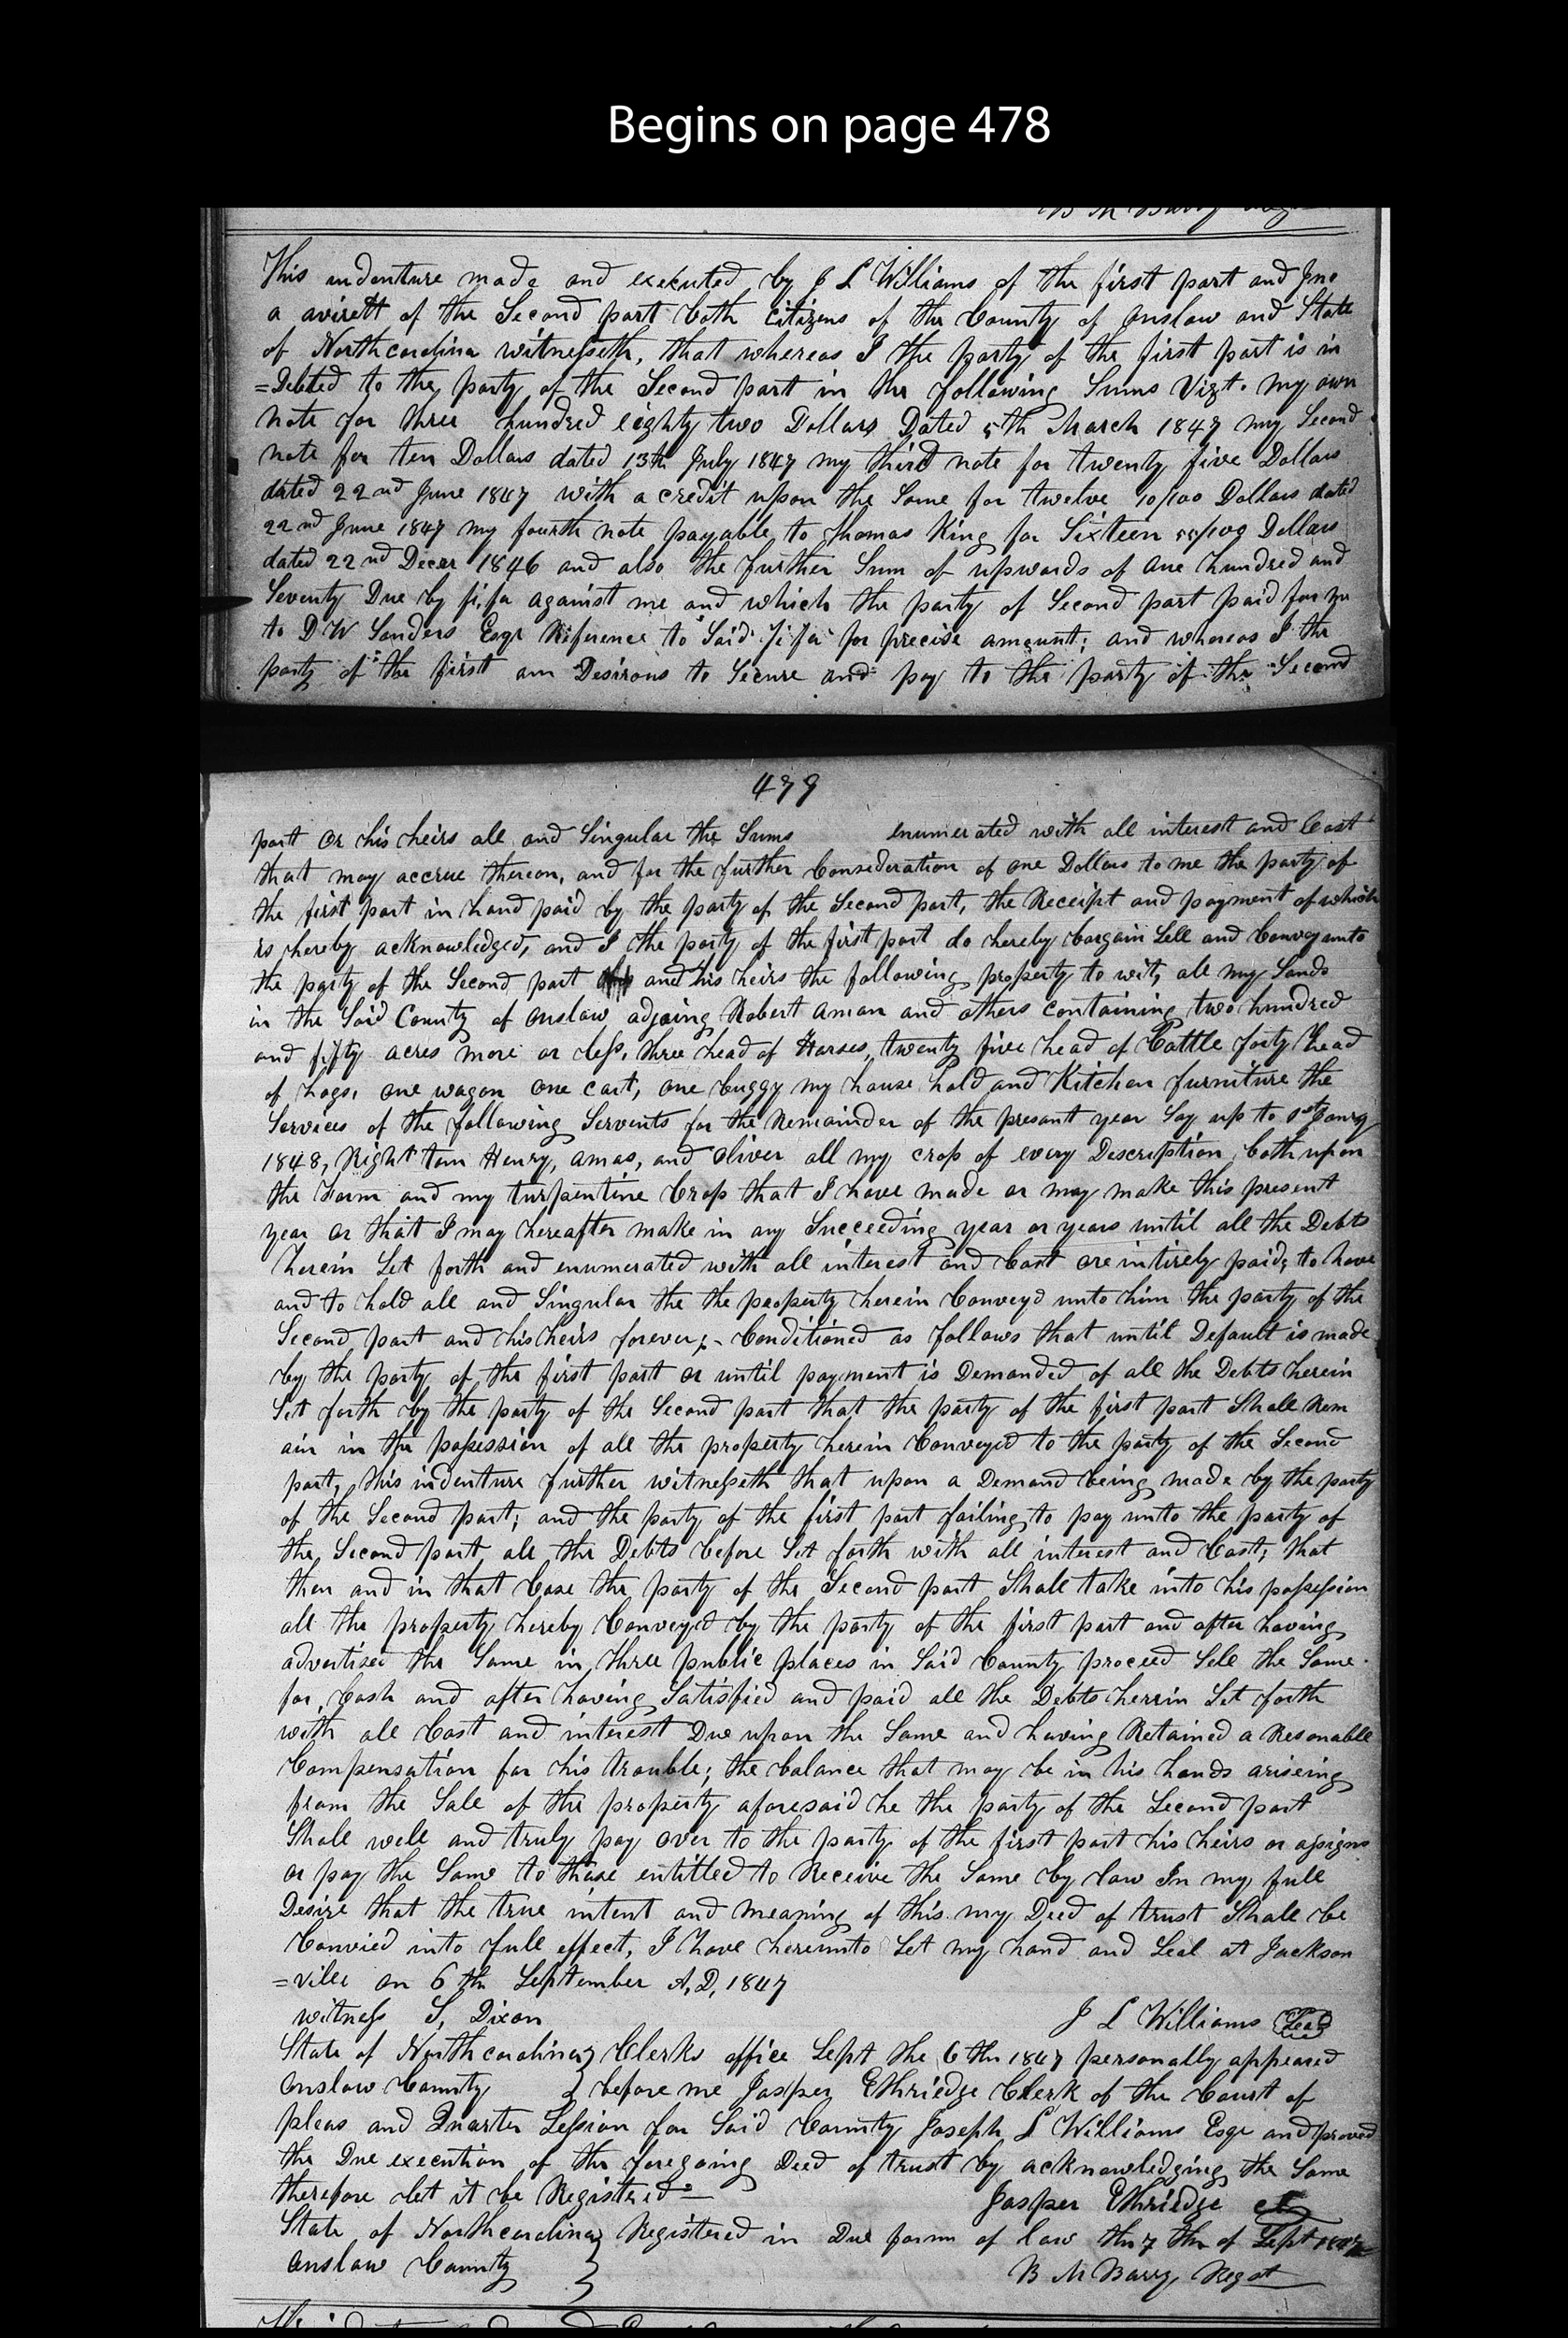 Begins on page 478
B M Barry
This indenture made and executed by J L Williams of the first part and Jno
a avirett of the Second part both citizens of the County of Onslow and State
of Northcarolina witnesseth, that whereas I the party of the first part is in
=Debted to the party of the Second part in the following Sums Vizt. my own
note for three hundred eighty two Dollars Dated 5th March 1847 my Second
note for ten Dollars dated 13th July 1847 my third note for twenty five Dollars
dated 22nd June 1847 with a credit upon the Same for twelve 10/100 Dollars dated
22nd June 1847 my fourth note payable to Thomas King for Sixteen 55/100 Dollars
dated 22nd Decer 1846 and also the further Sum of upwards of one hundred and
Seventy Due by fi,fa against me and which the party of Second part paid for me
to D W Sanders Esqr Reference to Said fi fa for precise amount; and whereas I the
party of the first am Desirous to Secure and pay to the party of the Second
479
part or his heirs all and Singular the Sums enumerated with all interest and Cost
that may accrue thereon, and for the further Consideration of one Dollars to me the party of
the first part in hand paid by the party of the Second part, the Receipt and payment of which
is hereby acknowledged, and I the party of the first part do hereby bargain Sell and Convey unto
the party of the Second part and his heirs the following property to wit, all my Lands
in the Said County of Onslow adjoing Robert Aman and others containing two hundred
and fifty acres more or less, three head of Horses, twenty five head of Cattle forty head
of hogs, one wagon one cart, one buggy my house hold and Kitchen furniture the
Services of the following Servents for the Remainder of the present year Say up to 1st Janry
1848, Right tom Henry, amos, and Oliver all my crop of every Description both upon
the Farm and my turpentine Crop that I have made or may make this present
year or that I may hereafter make in any Succeeding year or years until all the Debts
herein Set forth and enumerated with all interest and Cost are intirely paid; to have
and to hold all and Singular the the property herein Conveyd unto him the party of the
Second part and his heirs forever;- Conditioned as follows that until Default is made
by the party of the first part or until payment is Demanded of all the Debts herein
Set forth by the party of the Second part that the party of the first part Shall Rem
ain in the possession of all the property herein Conveyed to the party of the Second
part, this indenture further witnesseth that upon a Demand being made by the party
of the Second part; and the party of the first part failing to pay unto the party of
the Second part all the Debts before Set forth with all interest and Cost; that
then and in that Case the party of the Second part Shall take into his possession
all the property hereby Conveyed by the party of the first part and after having
advertised the Same in three public places in Said County proceed Sell the Same
for Cash and after having Satisfied and paid all the Debts herein Set forth
with all Cost and interest Due upon the Same and having Retained a Resonable
Compensation for his trouble; the balance that may be in his hands ariseing
from the Sale of the property aforesaid he the party of the Second part
Shall well and truly pay over to the party of the first part his heirs or assigns
or pay the Same to those entitled to Receive the Same by law In my full
Desire that the true intent and meaning of this my Deed of trust Shall be
Convied into full effect, I have hereunto Set my hand and Seal at Jackson
=ville on 6th September A,D, 1847
witness S, Dixon
J L Williams Seal
State of Northcarolina } Clerks office Sept the 6th 1847 personally appeared
Onslow County } before me Jasper Ethriedge Clerk of the Court of
pleas and Quarter Session for Said County Joseph L Williams Esqr and proved
the Due execution of the foregoing Deed of trust by acknowledging the Same
therefore let it be Registered
Jasper Ethriedge
State of Northcarolina } Registered in Due form of law the 7th of Sept 1847
Onslow County }
B M Barry Regst